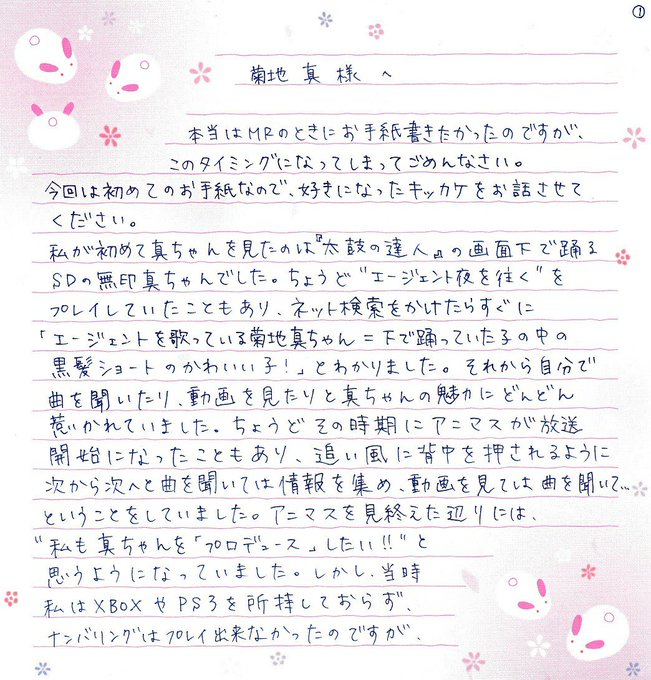 ①
菊地 真 様 へ
本当はMRのときにお手紙書きたかったのですが、
このタイミングになってしまってごめんなさい。
今回は初めてのお手紙なので、好きになったキッカケをお話させて
ください。
私が初めて真ちゃんを見たのは『太鼓の達人』の画面下で踊る
SDの無印真ちゃんでした。ちょうど"エージェント夜を往く"を
プレイしていたこともあり、ネット検索をかけたらすぐに
「エージェントを歌っている菊地真ちゃん=下で踊っていた子の中の
黒髪ショートのかわいい子!」とわかりました。それから自分で
曲を聞いたり、動画を見たりと真ちゃんの魅力にどんどん
惹かれていました。ちょうどその時期にアニマスが放送
開始になったこともあり、追い風に背中を押されるように
次から次へと曲を聞いては情報を集め、動画を見ては曲を聞いて…
ということをしていました。アニマスを見終えた辺りには、
"私も真ちゃんを「プロデュース」したい!!"と
思うようになっていました。しかし、当時
私はXBOXやPS3を所持しておらず、
ナンバリングはプレイ出来なかったのですが、